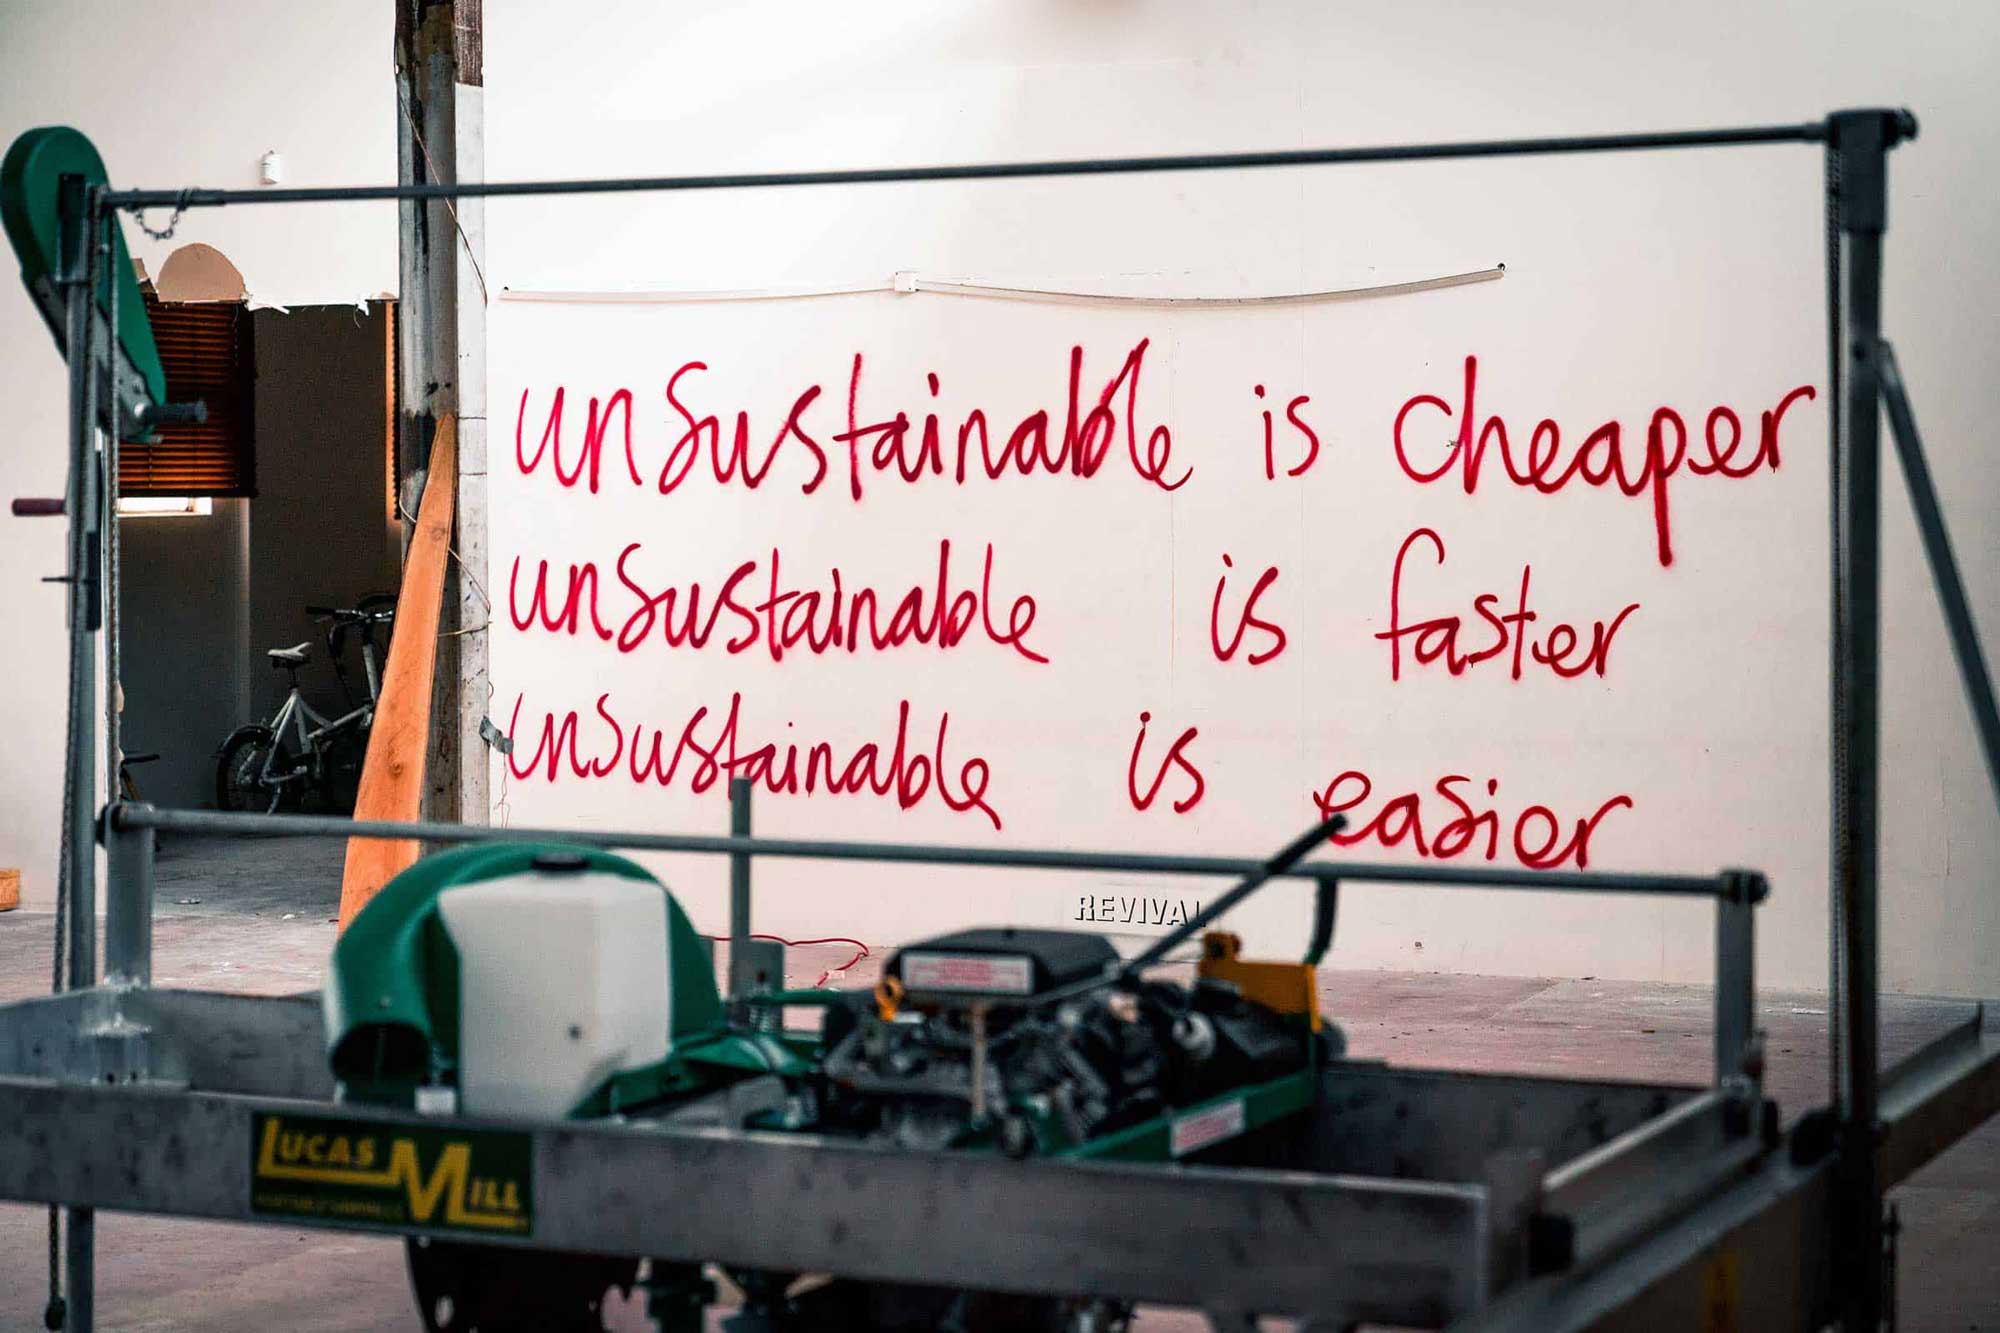 unsustainable is cheaper
unsustainable is faster
unsustainable is easier
REVIVAL
LUCAS MILL